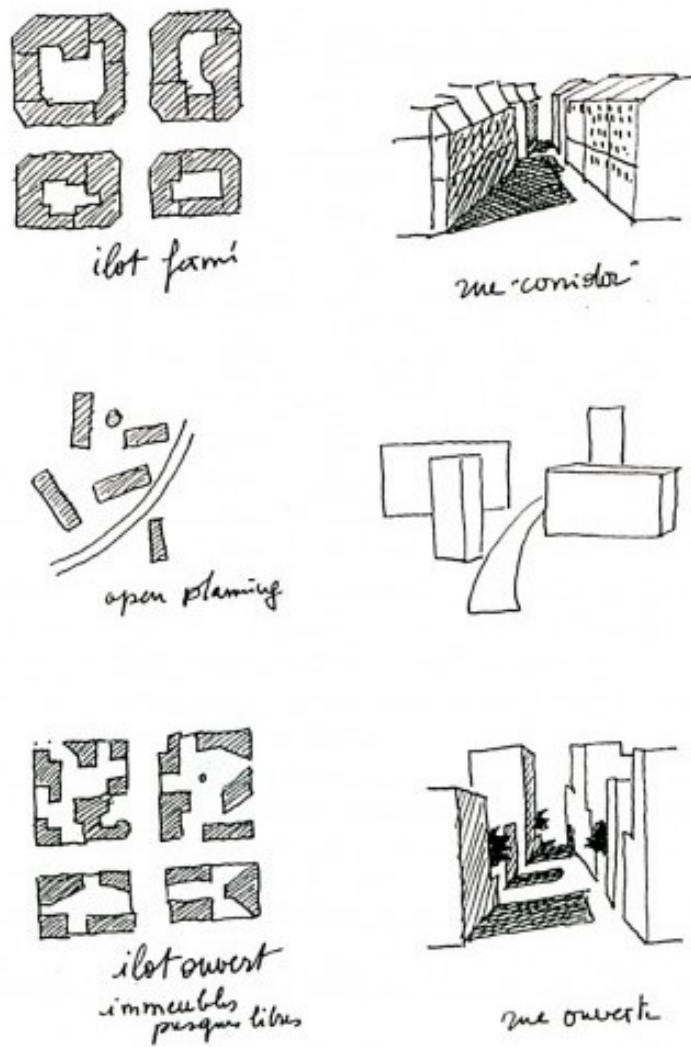 ilot fermé
rue-"corridor"
open planning
ilot ouvert
immeubles
presques libres
rue ouverte